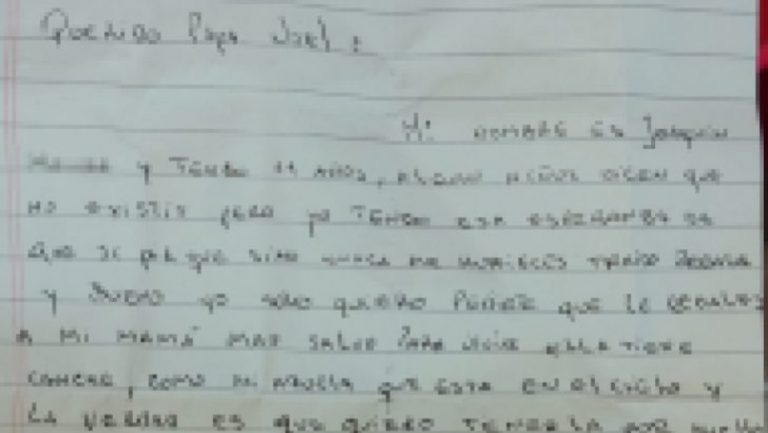 Querido Papa Noel:
Mi nombre es Joaquin
y tengo 11 años, algun niños dicen que
no existis pero yo tengo esa esperanza de
que si por que sino nunca me hubieses traido
y bueno yo solo quiero pedirte que le regales
a mi mamá mas salud para vivir ella tiene
cancer, como mi abuela que esta en el cielo y
la verdad es que quiero tenerla por mucho